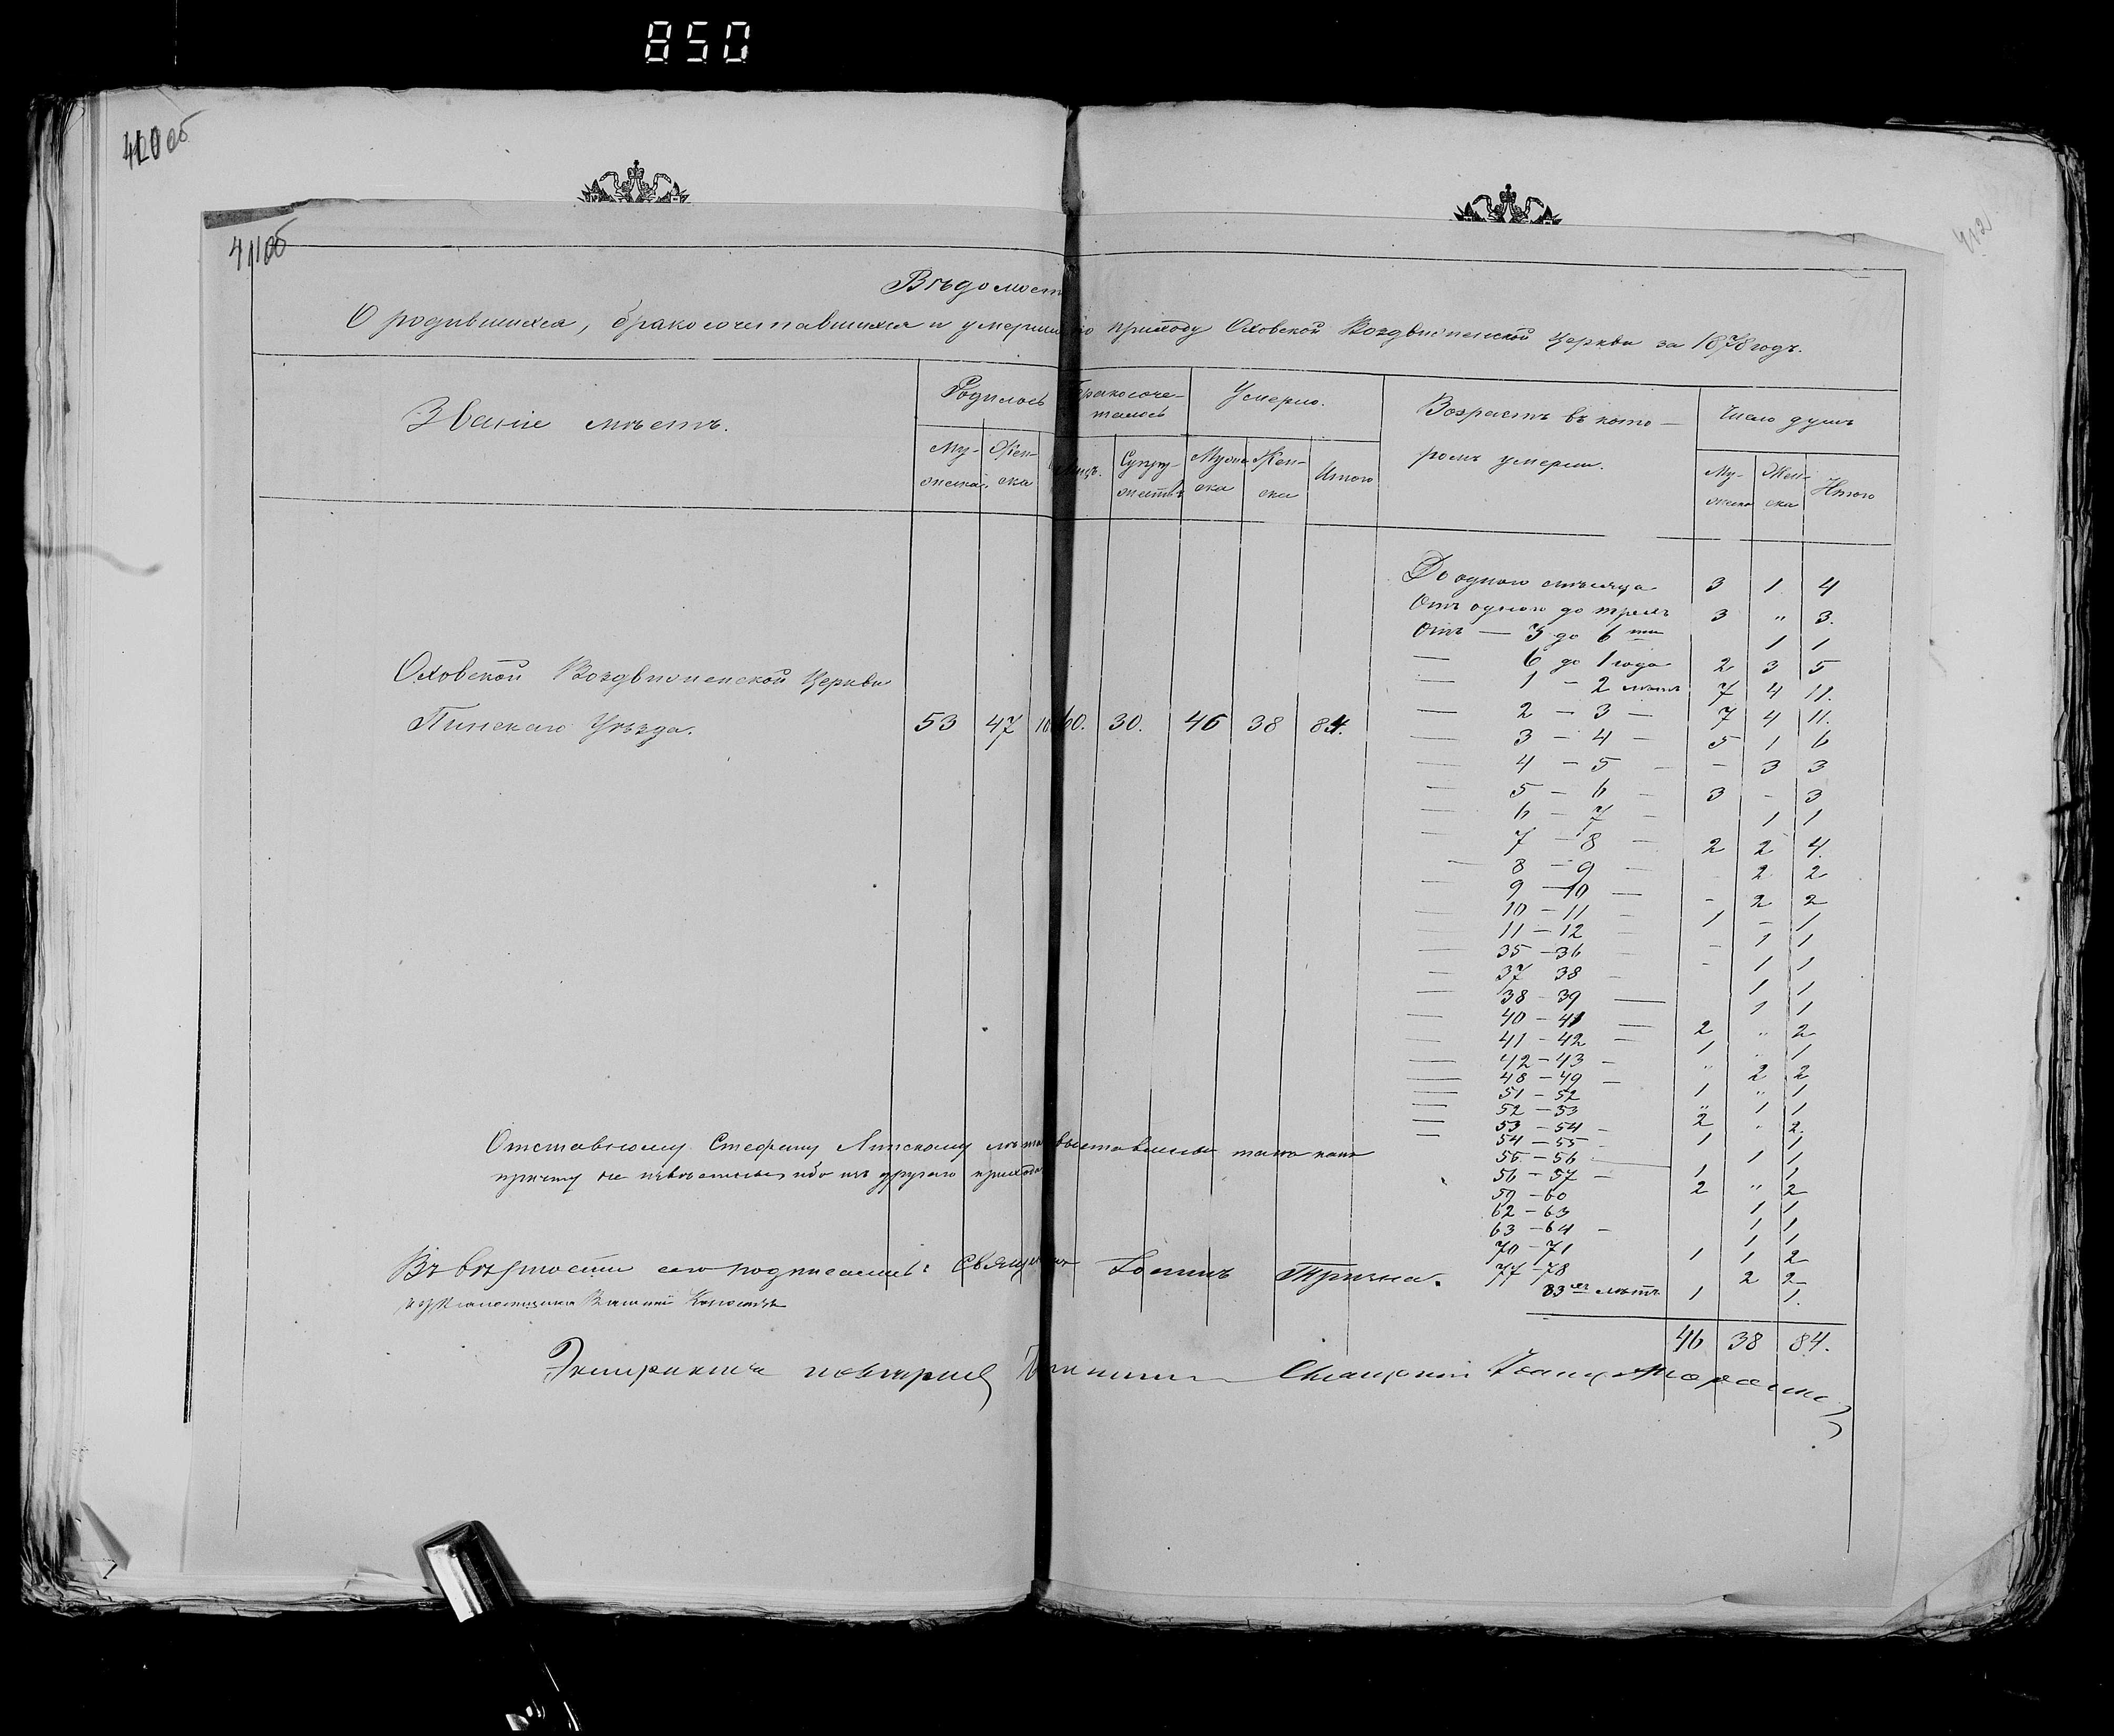 850
411об
412
Вѣдомость
О родившихся, бракосочетавшихся и умерших по приходу Оховской Воздвиженской Церкви за 1878 годъ.
Званіе мѣстъ.
Родилось
Бракосоче-
талось
Умерло.
Возрастъ въ кото-
ромъ умерли.
Число душъ
Му- Жен-
жеска ска
Супру-
жествъ
Муже Жен- Итого
ска ска
Му- Жен- Итого
жеска ска
До одного мѣсяца 3 1 4
Отъ одного до трехъ 3 " 3.
Отъ — 3 до 6 ти 1 1
— 6 до 1 года 2 3 5
1 - 2 лѣтъ 7 4 11.
— 2 - 3 — 7 4 11.
— 3 - 4 — 5 1 6
— 4 - 5 — - 3 3
— 5 - 6 — 3 - 3
— 6 - 7 — 1 1
— 7 - 8 — 2 2 4.
— 8 - 9 — 2 2
— 9 - 10 — - 2 2
— 10 - 11 — 1 - 1
— 11 - 12 — - 1 1
— 35 - 36 — - 1 1
— 37 38 — 1 1
— 38 - 39 — 1 1
— 40 - 41 — 2 " 2
— 41 - 42 — 1 " 1
— 42 - 43 — " 2 2
— 48 - 49 — 1 " 1
— 51 - 52 " 1 1
— 52 - 53 2 " 2
— 53 - 54 - 1 1
— 54 - 55 - 1 1
55 - 56 1 1
56 - 57 — 2 " 2
59 - 60 1 1
62 - 63 1 1
63 - 64 - 1 1
70 - 71 1 1 2
77 - 78 2 2
83 хъ лѣтъ 1 1.
46 38 84.
Оховской Воздвиженской Церкви
Пинскаго Уѣзда. 53 47 60. 30. 46 38 84.
Отставному Стефану лѣта выставлены такъ какъ
причту не извѣстны, ибо изъ другаго прихода
Въ вѣрности сего подписались: Священникъ Іоаннъ Тричка.